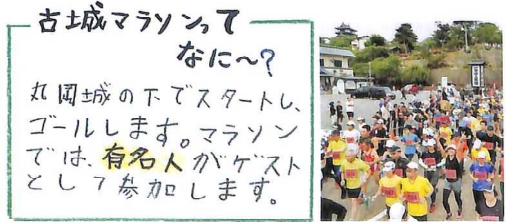 古城マラソンって
なに～?
丸岡城の下でスタートし、
ゴールします。マラソン
では、有名人がゲスト
として参加します。